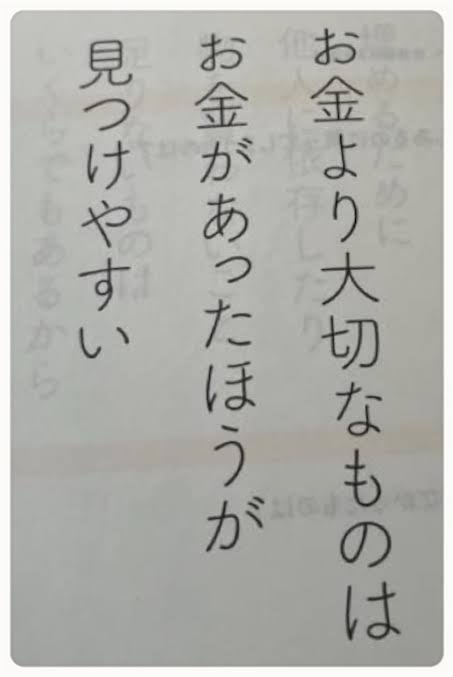 お金より大切なものは
お金があったほうが
見つけやすい